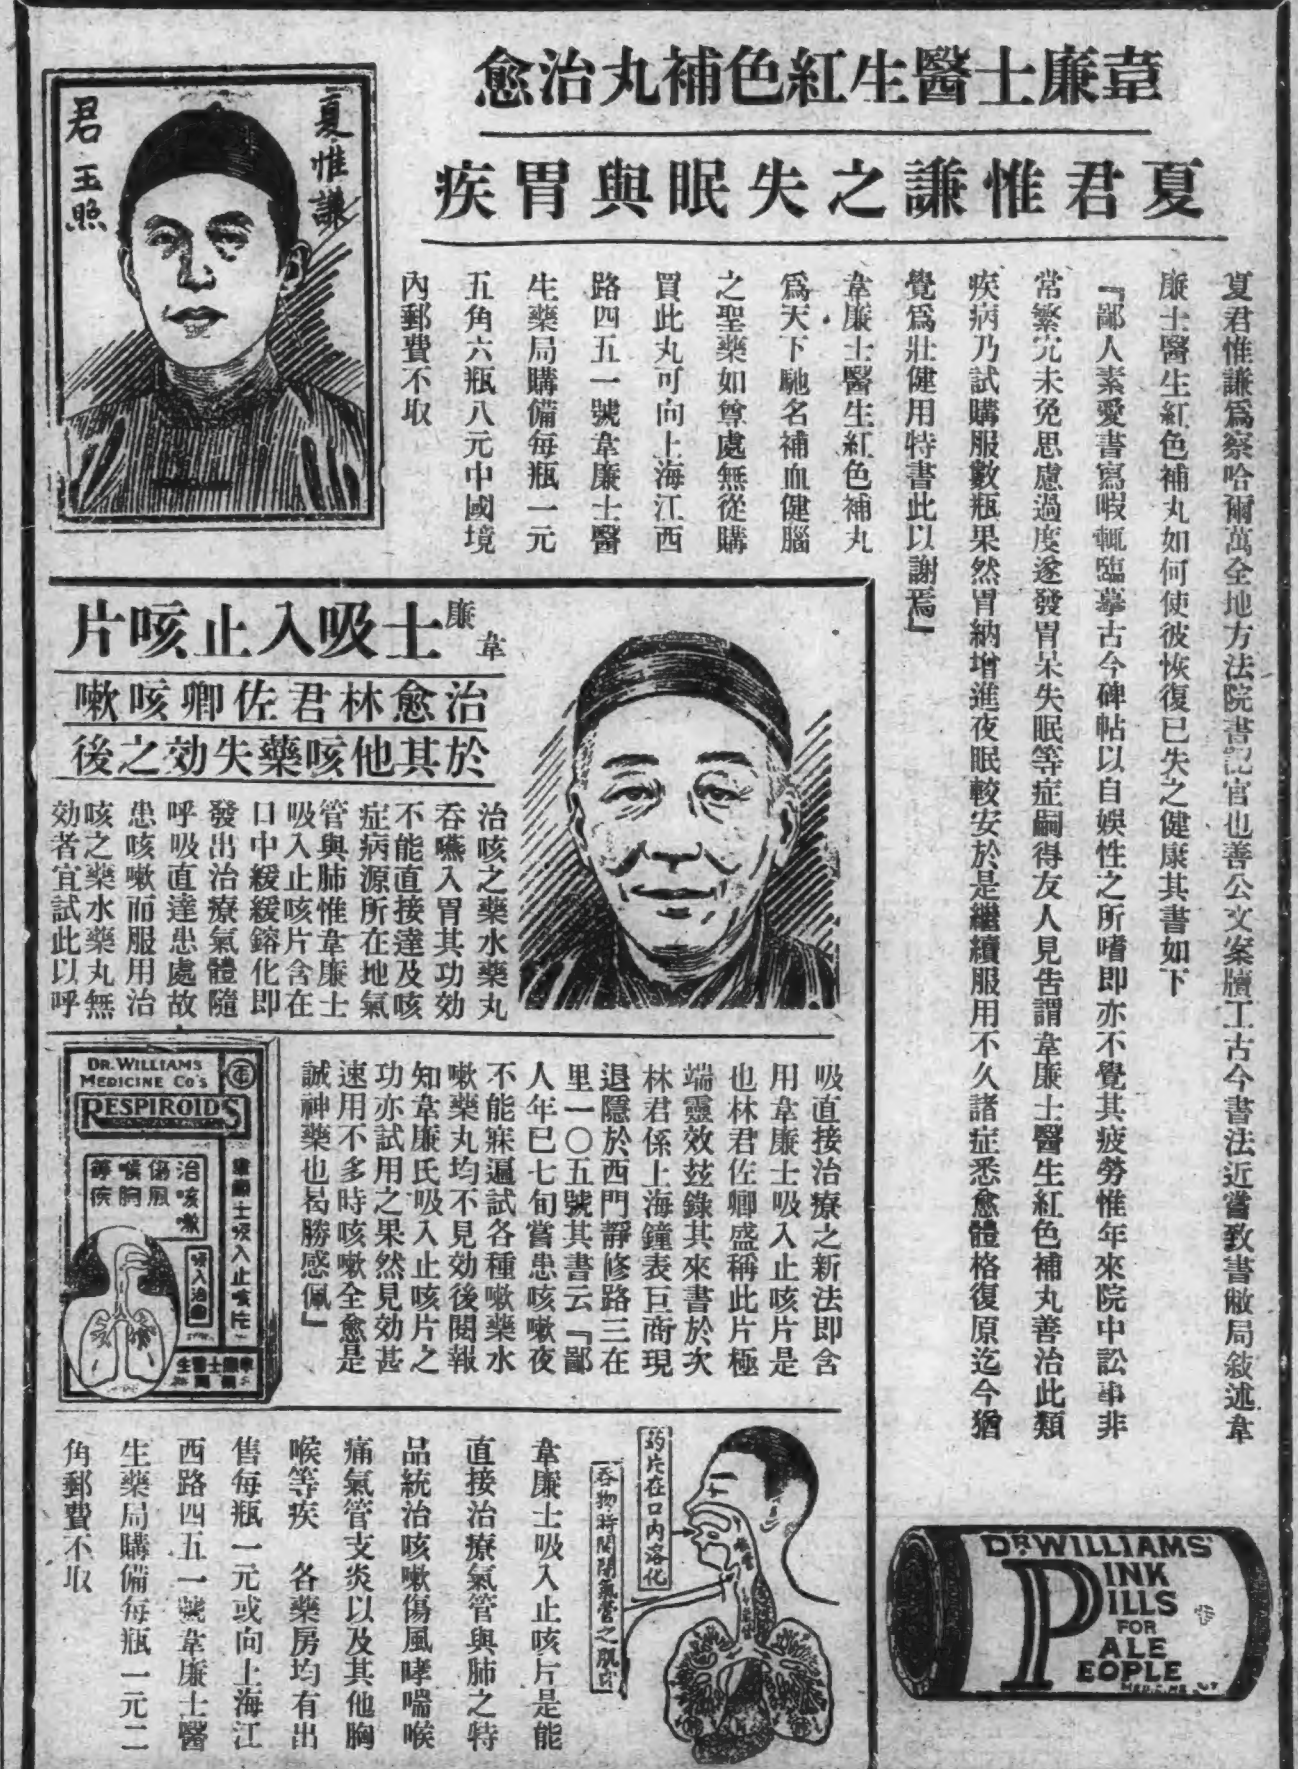 韋廉士醫生紅色補丸治愈
夏君惟謙之失眠與胃疾
夏惟謙
君玉照
夏君惟謙爲察哈爾萬全地方法院書記官也善公文案牘工古今書法近嘗致書敝局敘述韋
廉士醫生紅色補丸如何使彼恢復已失之健康其書如下
『鄙人素愛書寫暇輒臨摹古今碑帖以自娛性之所嗜即亦不覺其疲勞惟年來院中訟事非
常繁冗未免思慮過度遂發胃呆失眠等症嗣得友人見告謂韋廉士醫生紅色補丸善治此類
疾病乃試購服數瓶果然胃納增進夜眠較安於是繼續服用不久諸症悉愈體格復原迄今猶
覺爲壯健用特書此以謝焉』
韋廉士醫生紅色補丸
爲天下馳名補血健腦
之聖藥如尊處無從購
買此丸可向上海江西
路四五一號韋廉士醫
生藥局購備每瓶一元
五角六瓶八元中國境
內郵費不取
韋廉士吸入止咳片
治愈林君佐卿咳嗽
於其他咳藥失効之後
治咳之藥水藥丸
吞嚥入胃其功効
不能直接達及咳
症病源所在地氣
管與肺惟韋廉士
吸入止咳片含在
口中緩緩鎔化即
發出治療氣體隨
呼吸直達患處故
患咳嗽而服用治
咳之藥水藥丸無
効者宜試此以呼
吸直接治療之新法即含
用韋廉士吸入止咳片是
也林君佐卿盛稱此片極
端靈效玆錄其來書於次
林君係上海鐘表巨商現
退隱於西門靜修路三在
里一〇五號其書云『鄙
人年已七旬嘗患咳嗽夜
不能寐遍試各種嗽藥水
嗽藥丸均不見効後閱報
知韋廉氏吸入止咳片之
功亦試用之果然見効甚
速用不多時咳嗽全愈是
誠神藥也曷勝感佩』
DR. WILLIAMS
MEDICINE Co's
RESPIROIDS
治咳嗽
傷風
喉胸
等疾
韋廉士吸入止咳片
吸入治
韋廉士醫生
藥局
韋廉士吸入止咳片是能
直接治療氣管與肺之特
品統治咳嗽傷風哮喘喉
痛氣管支炎以及其他胸
喉等疾　各藥房均有出
售每瓶一元或向上海江
西路四五一號韋廉士醫
生藥局購備每瓶一元二
角郵費不取
药片在口內溶化
吞物時關閉氣管之肌
DR. WILLIAMS'
PINK
PILLS
FOR
PALE
PEOPLE